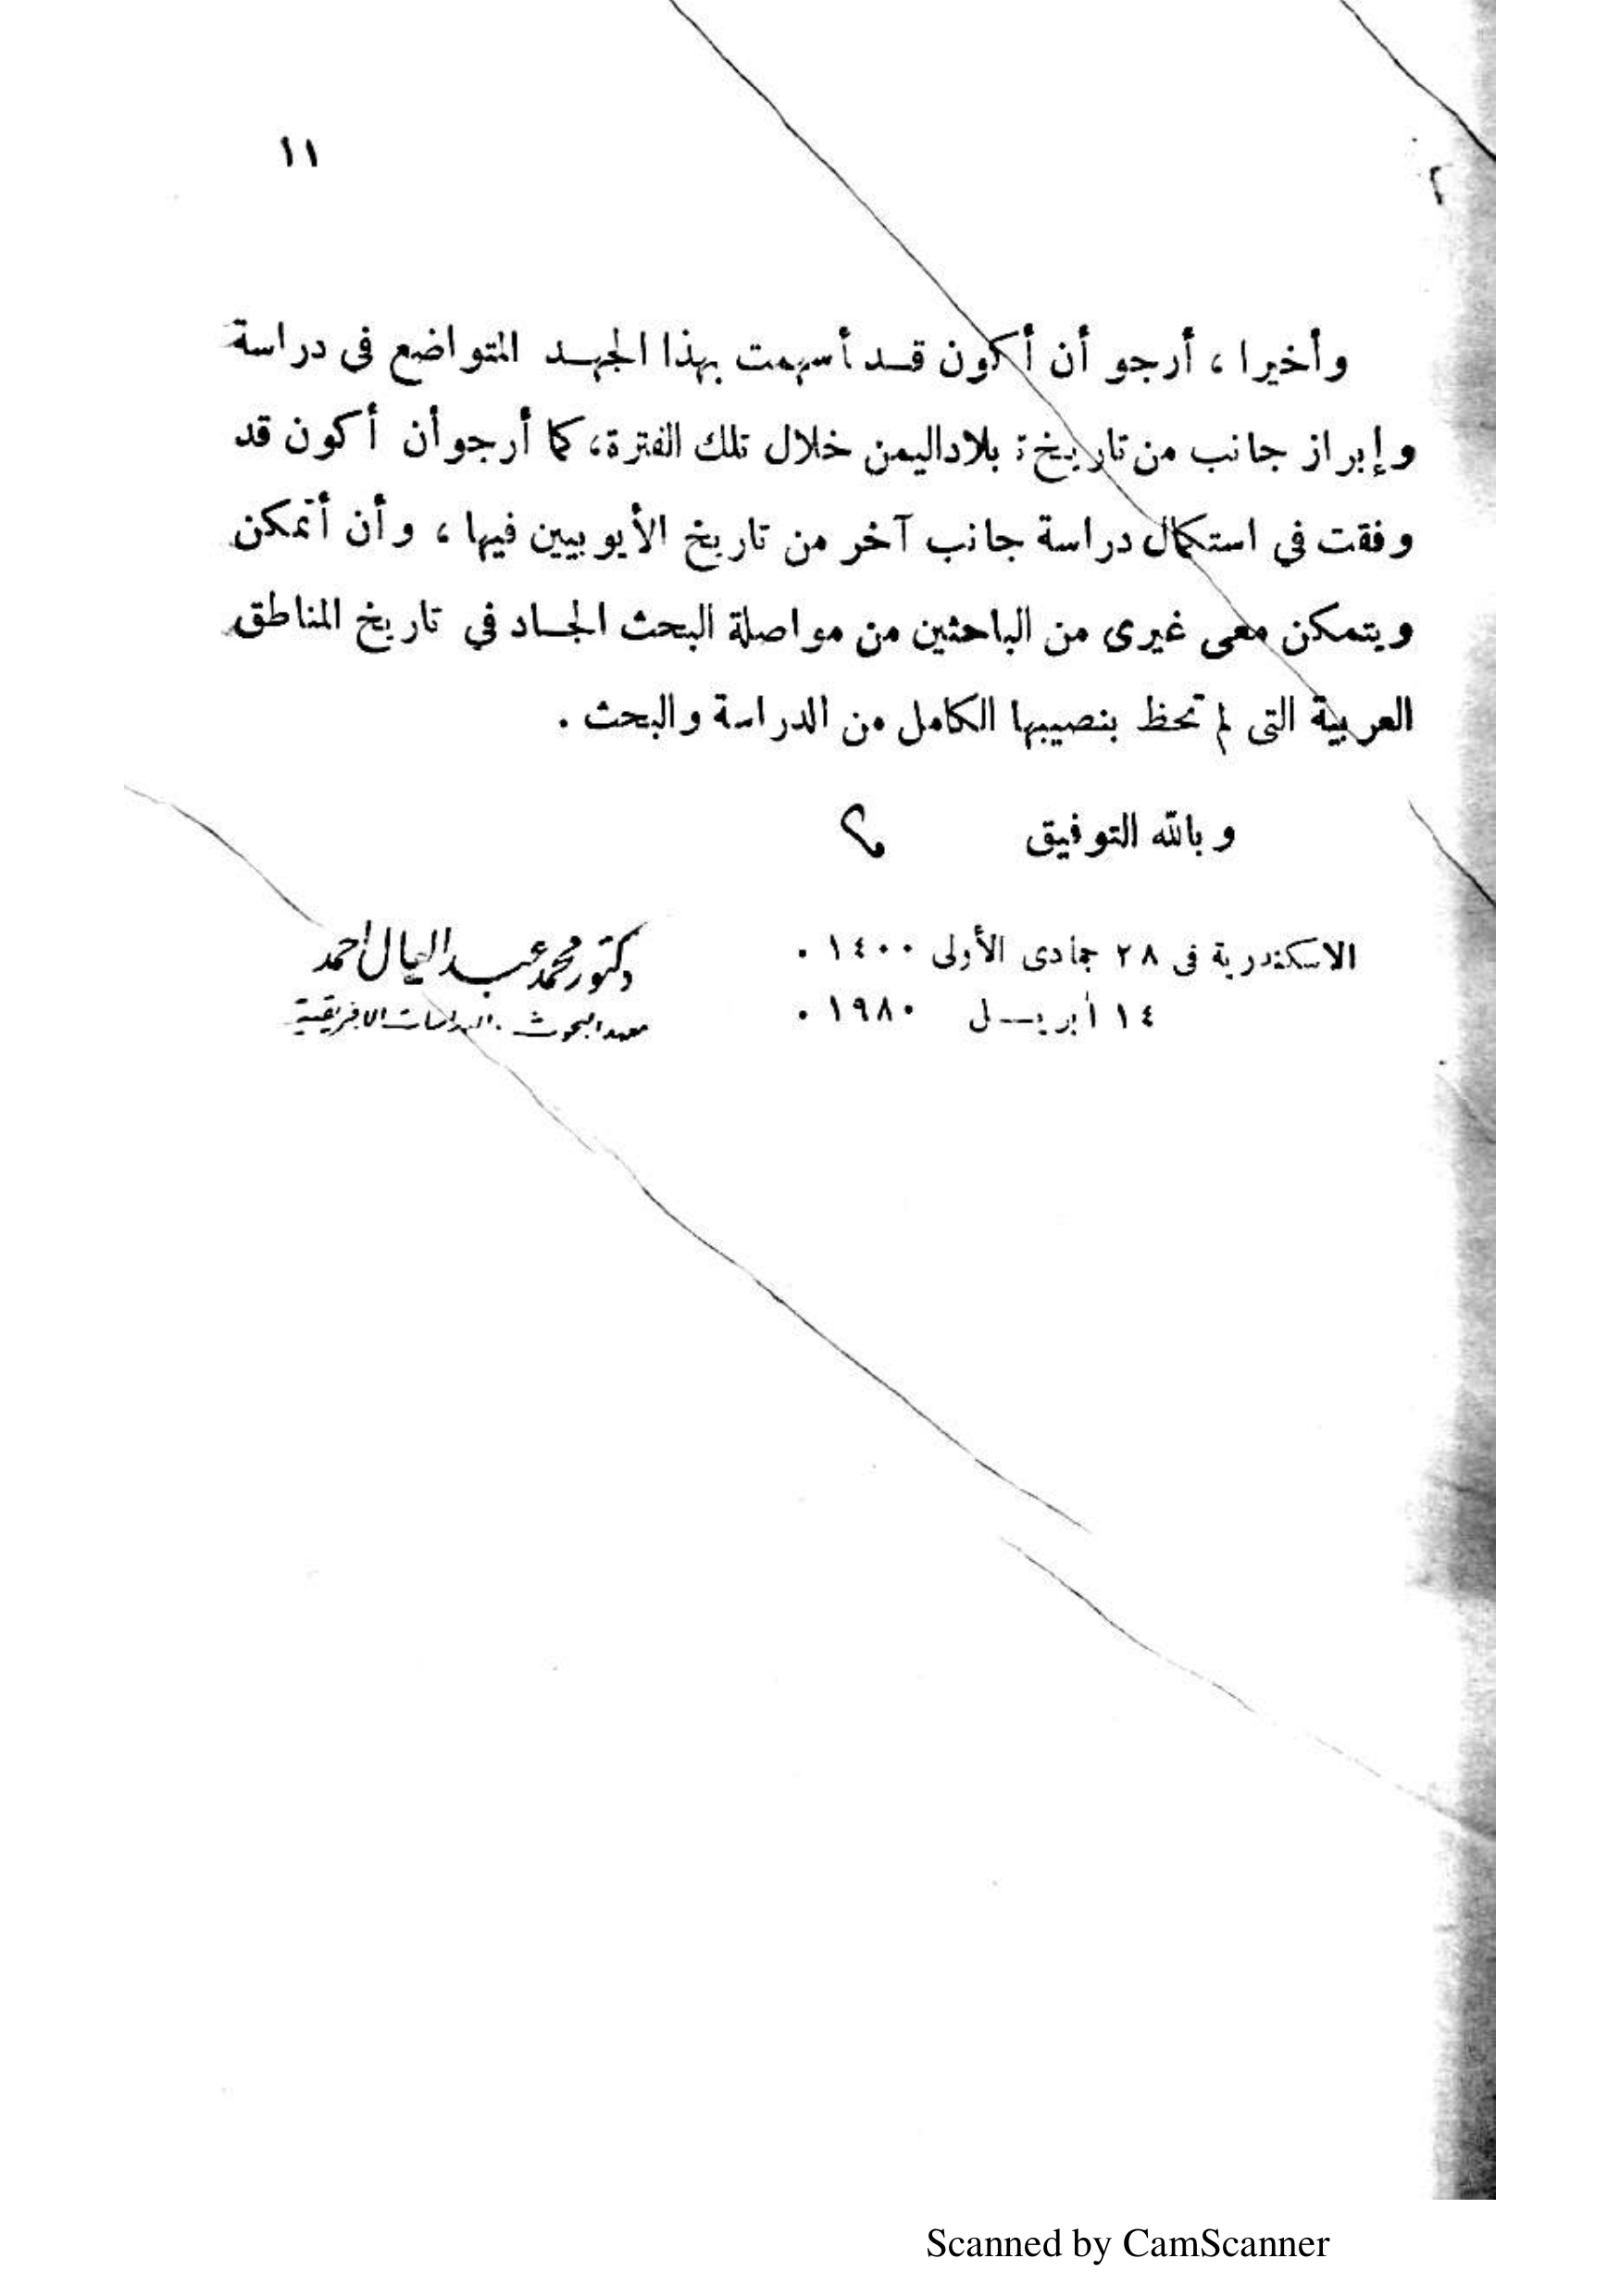 ١١
وأخيرا ، أرجو أن أكون قد أسهمت بهذا الجهد المتواضع في دراسة
وإبراز جانب من تاريخ بلاد اليمن خلال تلك الفترة، كما أرجو أن أكون قد
وفقت في استكمال دراسة جانب آخر من تاريخ الأيوبيين فيها ، وأن أتمكن
ويتمكن معى غيرى من الباحثين من مواصلة البحث الجاد في تاريخ المناطق
العربية التى لم تحظ بنصيبها الكامل من الدراسة والبحث .
وبالله التوفيق
الاسكندرية فى ٢٨ جمادى الأولى ١٤٠٠ .
١٤ أبريل ١٩٨٠ .
دكتور محمد عبد العال احمد
معهد البحوث والدراسات الافريقية
Scanned by CamScanner